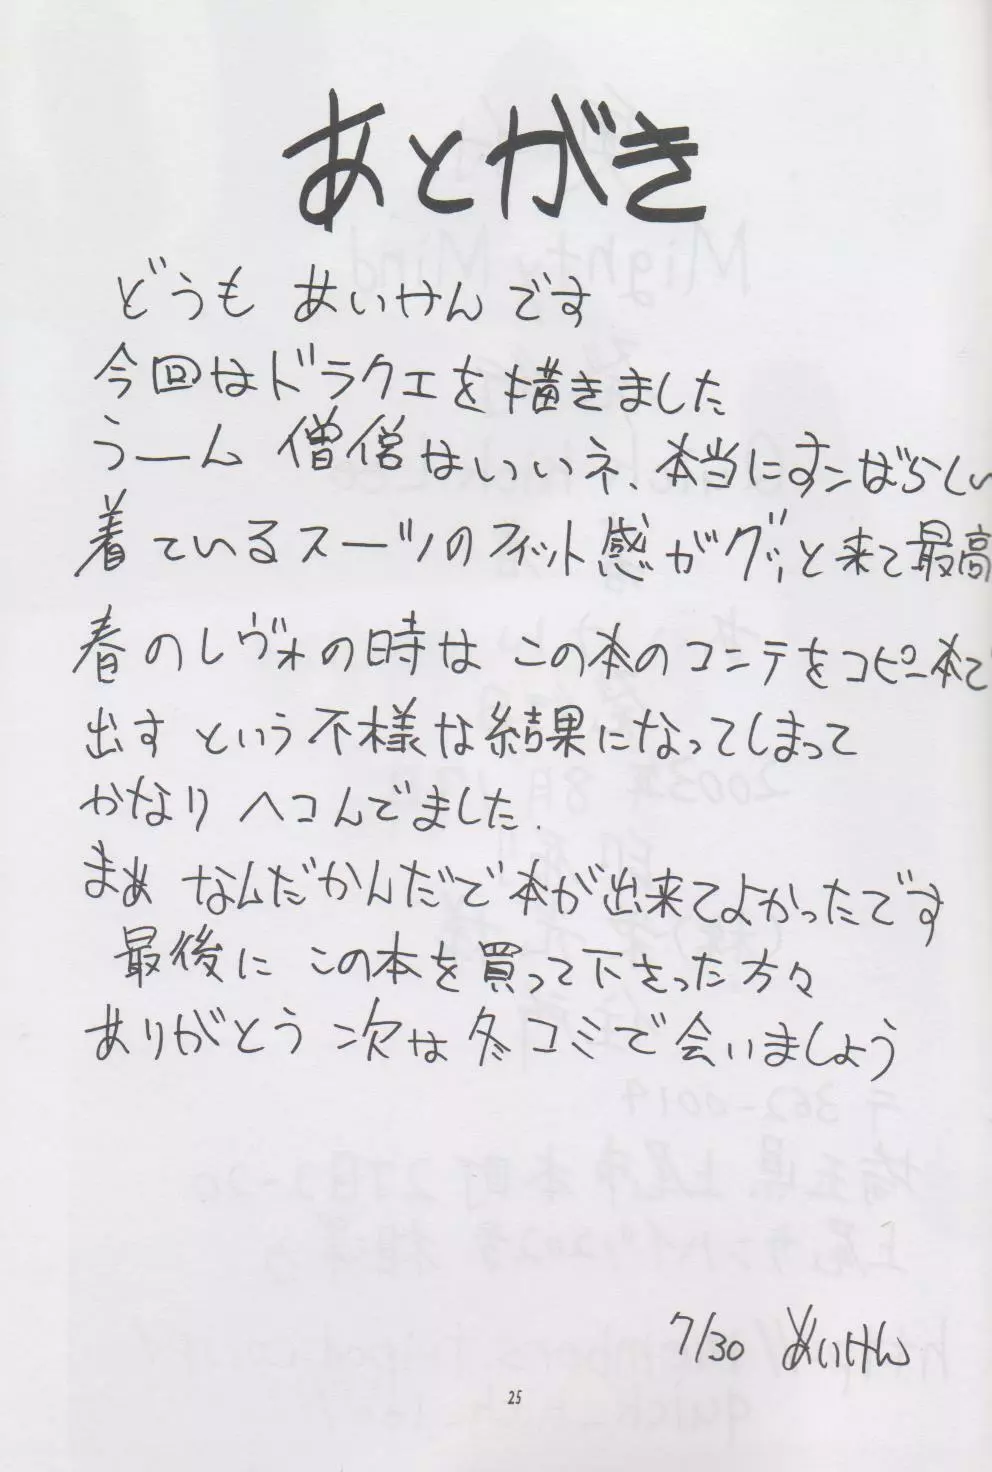 あとがき
どうも あいけんです
今回はドラクエを描きました
うーん 僧侶はいいネ、本当にすンばらしい
着ているスーツのフィット感がグッと来て最高
春のレヴォの時は この本のコンテをコピー本で
出すという不様な結果になってしまって
かなりヘコんでました.
まあ なんだかんだで本が出来てよかったです
最後に この本を買って下さった方々
ありがとう 次は冬コミで会いましょう
7/30 あいけん
25